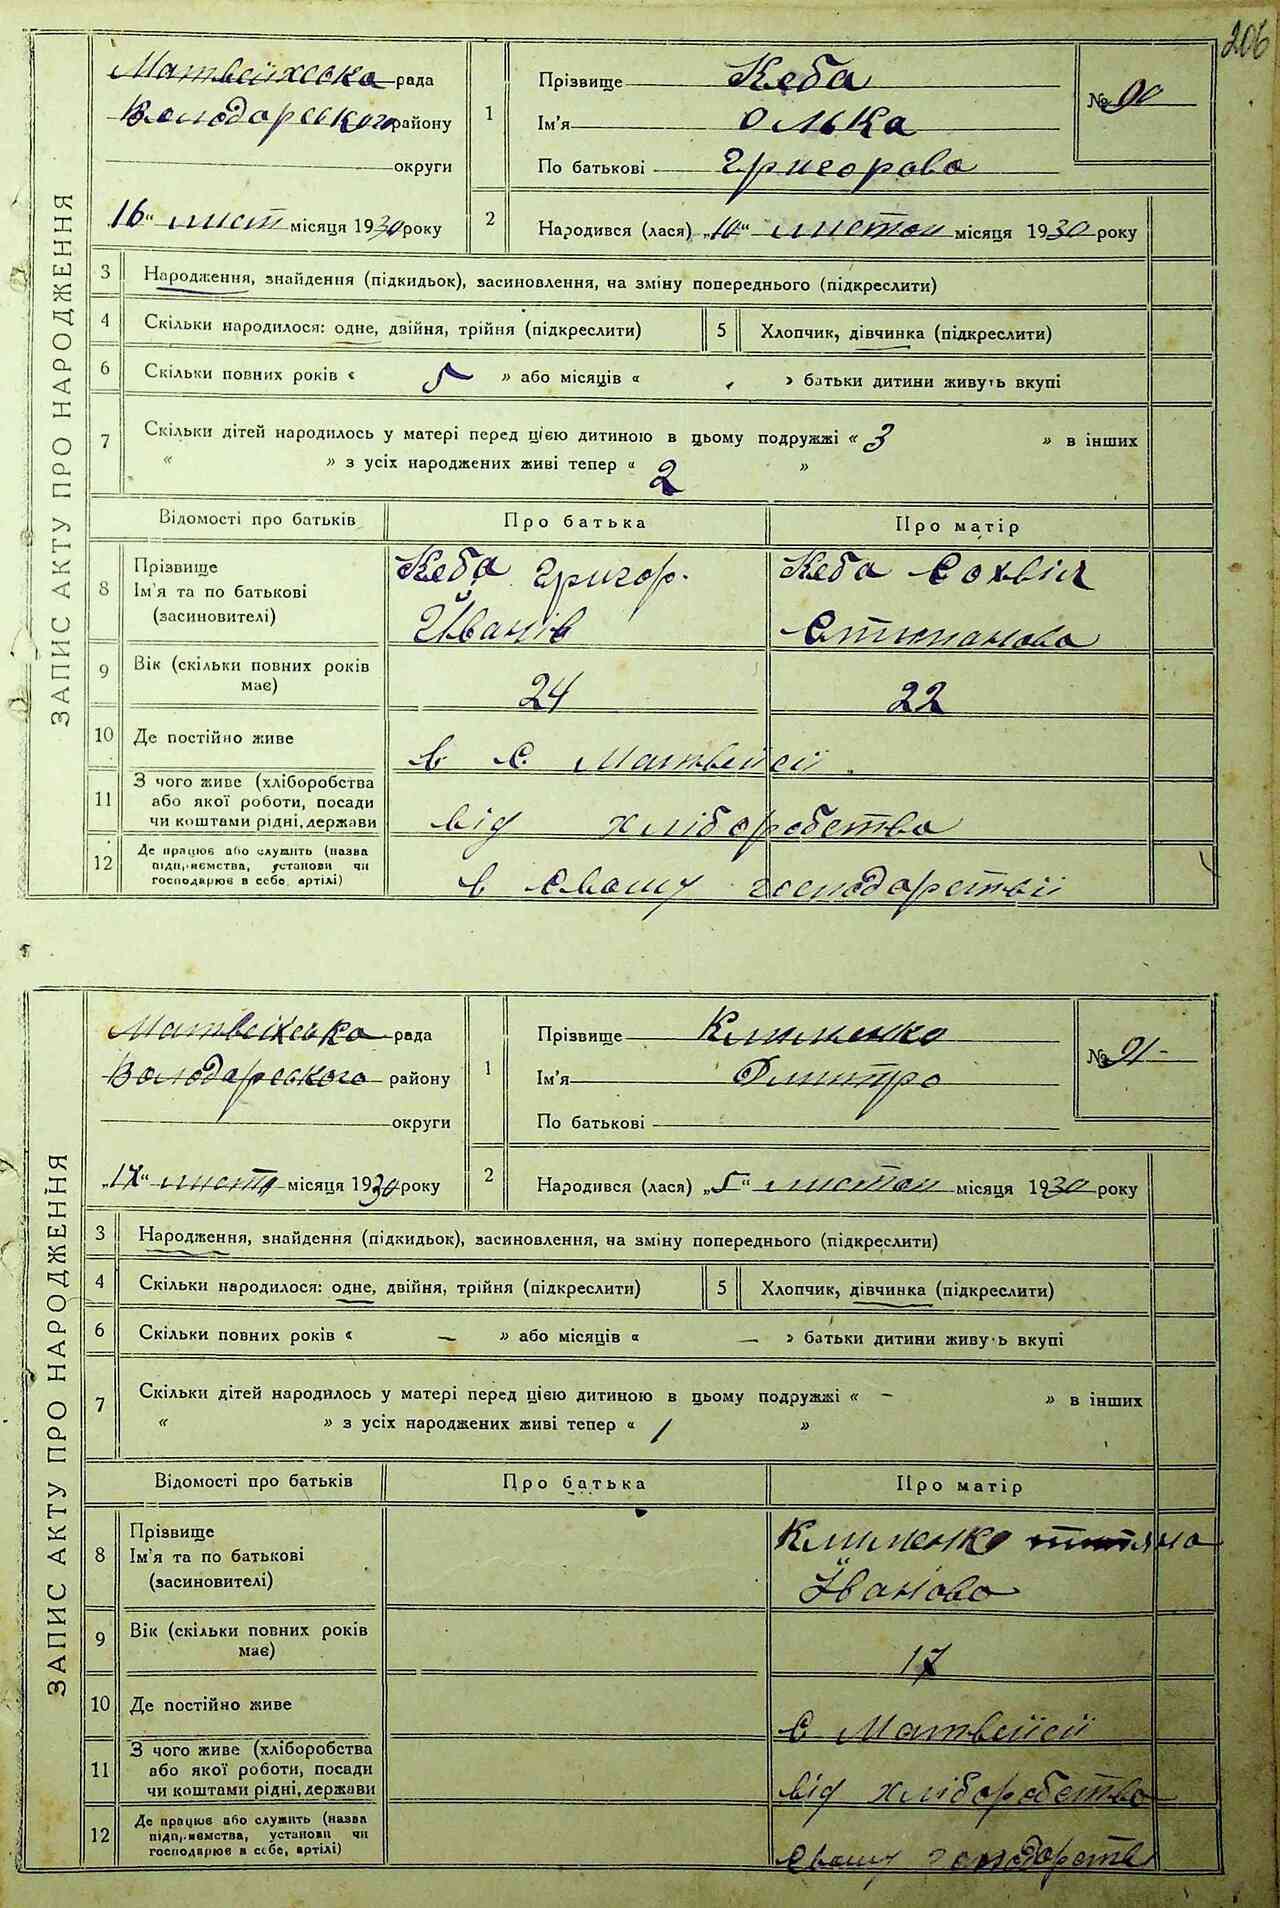 206
ЗАПИС АКТУ ПРО НАРОДЖЕННЯ
Матвеіхська рада
Володарського району
округи
"16" лист місяця 1930 року
1
Прізвище Кеба
Ім'я Олька
По батькові Григорова
№ 90
2
Народився (лася) "10" листоп місяця 1930 року
3
Народження, знайдення (підкидьок), засиновлення, на зміну попереднього (підкреслити)
4
Скільки народилося: одне, двійня, трійня (підкреслити)
5
Хлопчик, дівчинка (підкреслити)
6
Скільки повних років « 5 » або місяців « » батьки дитини живуть вкупі
7
Скільки дітей народилось у матері перед цією дитиною в цьому подружжі « 3 » в інших
« » з усіх народжених живі тепер « 2 »
Відомості про батьків
Про батька
Про матір
8
Прізвище
Ім'я та по батькові
(засиновителі)
Кеба Григор.
Йванів
Кеба Сохвія
Степанова
9
Вік (скільки повних років
має)
24
22
10
Де постійно живе
в с Матвейсії
11
З чого живе (хліборобства
або якої роботи, посади
чи коштами рідні, держави
від хліборобства
12
Де працює або служить (назва
підприємства, установи чи
господарює в себе, артілі)
в свому господарствії
ЗАПИС АКТУ ПРО НАРОДЖЕННЯ
Матвеіхська рада
Володарського району
округи
"17" листо місяця 1930 року
1
Прізвище Клименко
Ім'я Дмитро
По батькові
№ 91
2
Народився (лася) "5" листоп місяця 1930 року
3
Народження, знайдення (підкидьок), засиновлення, на зміну попереднього (підкреслити)
4
Скільки народилося: одне, двійня, трійня (підкреслити)
5
Хлопчик, дівчинка (підкреслити)
6
Скільки повних років « — » або місяців « — » батьки дитини живуть вкупі
7
Скільки дітей народилось у матері перед цією дитиною в цьому подружжі « - » в інших
« » з усіх народжених живі тепер « 1 »
Відомості про батьків
Про батька
Про матір
8
Прізвище
Ім'я та по батькові
(засиновителі)
Клименко
Йванова
9
Вік (скільки повних років
має)
17
10
Де постійно живе
с Матвейсії
11
З чого живе (хліборобства
або якої роботи, посади
чи коштами рідні, держави
від хліборобства
12
Де працює або служить (назва
підприємства, установи чи
господарює в себе, артілі)
свому господарств